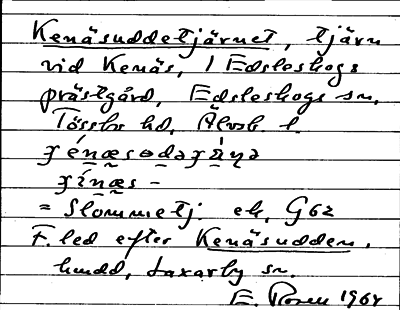 Kenäsuddetjärnet, tjärn
vid Kenäs, 1 Edsleskogs
prästgård, Edsleskogs sn,
Tössbo hd, Älvsb l.
= Slommetj. ek, G62
F. led efter Kenäsudden,
hmdd, Laxarby sn.
E. Rosen 1964